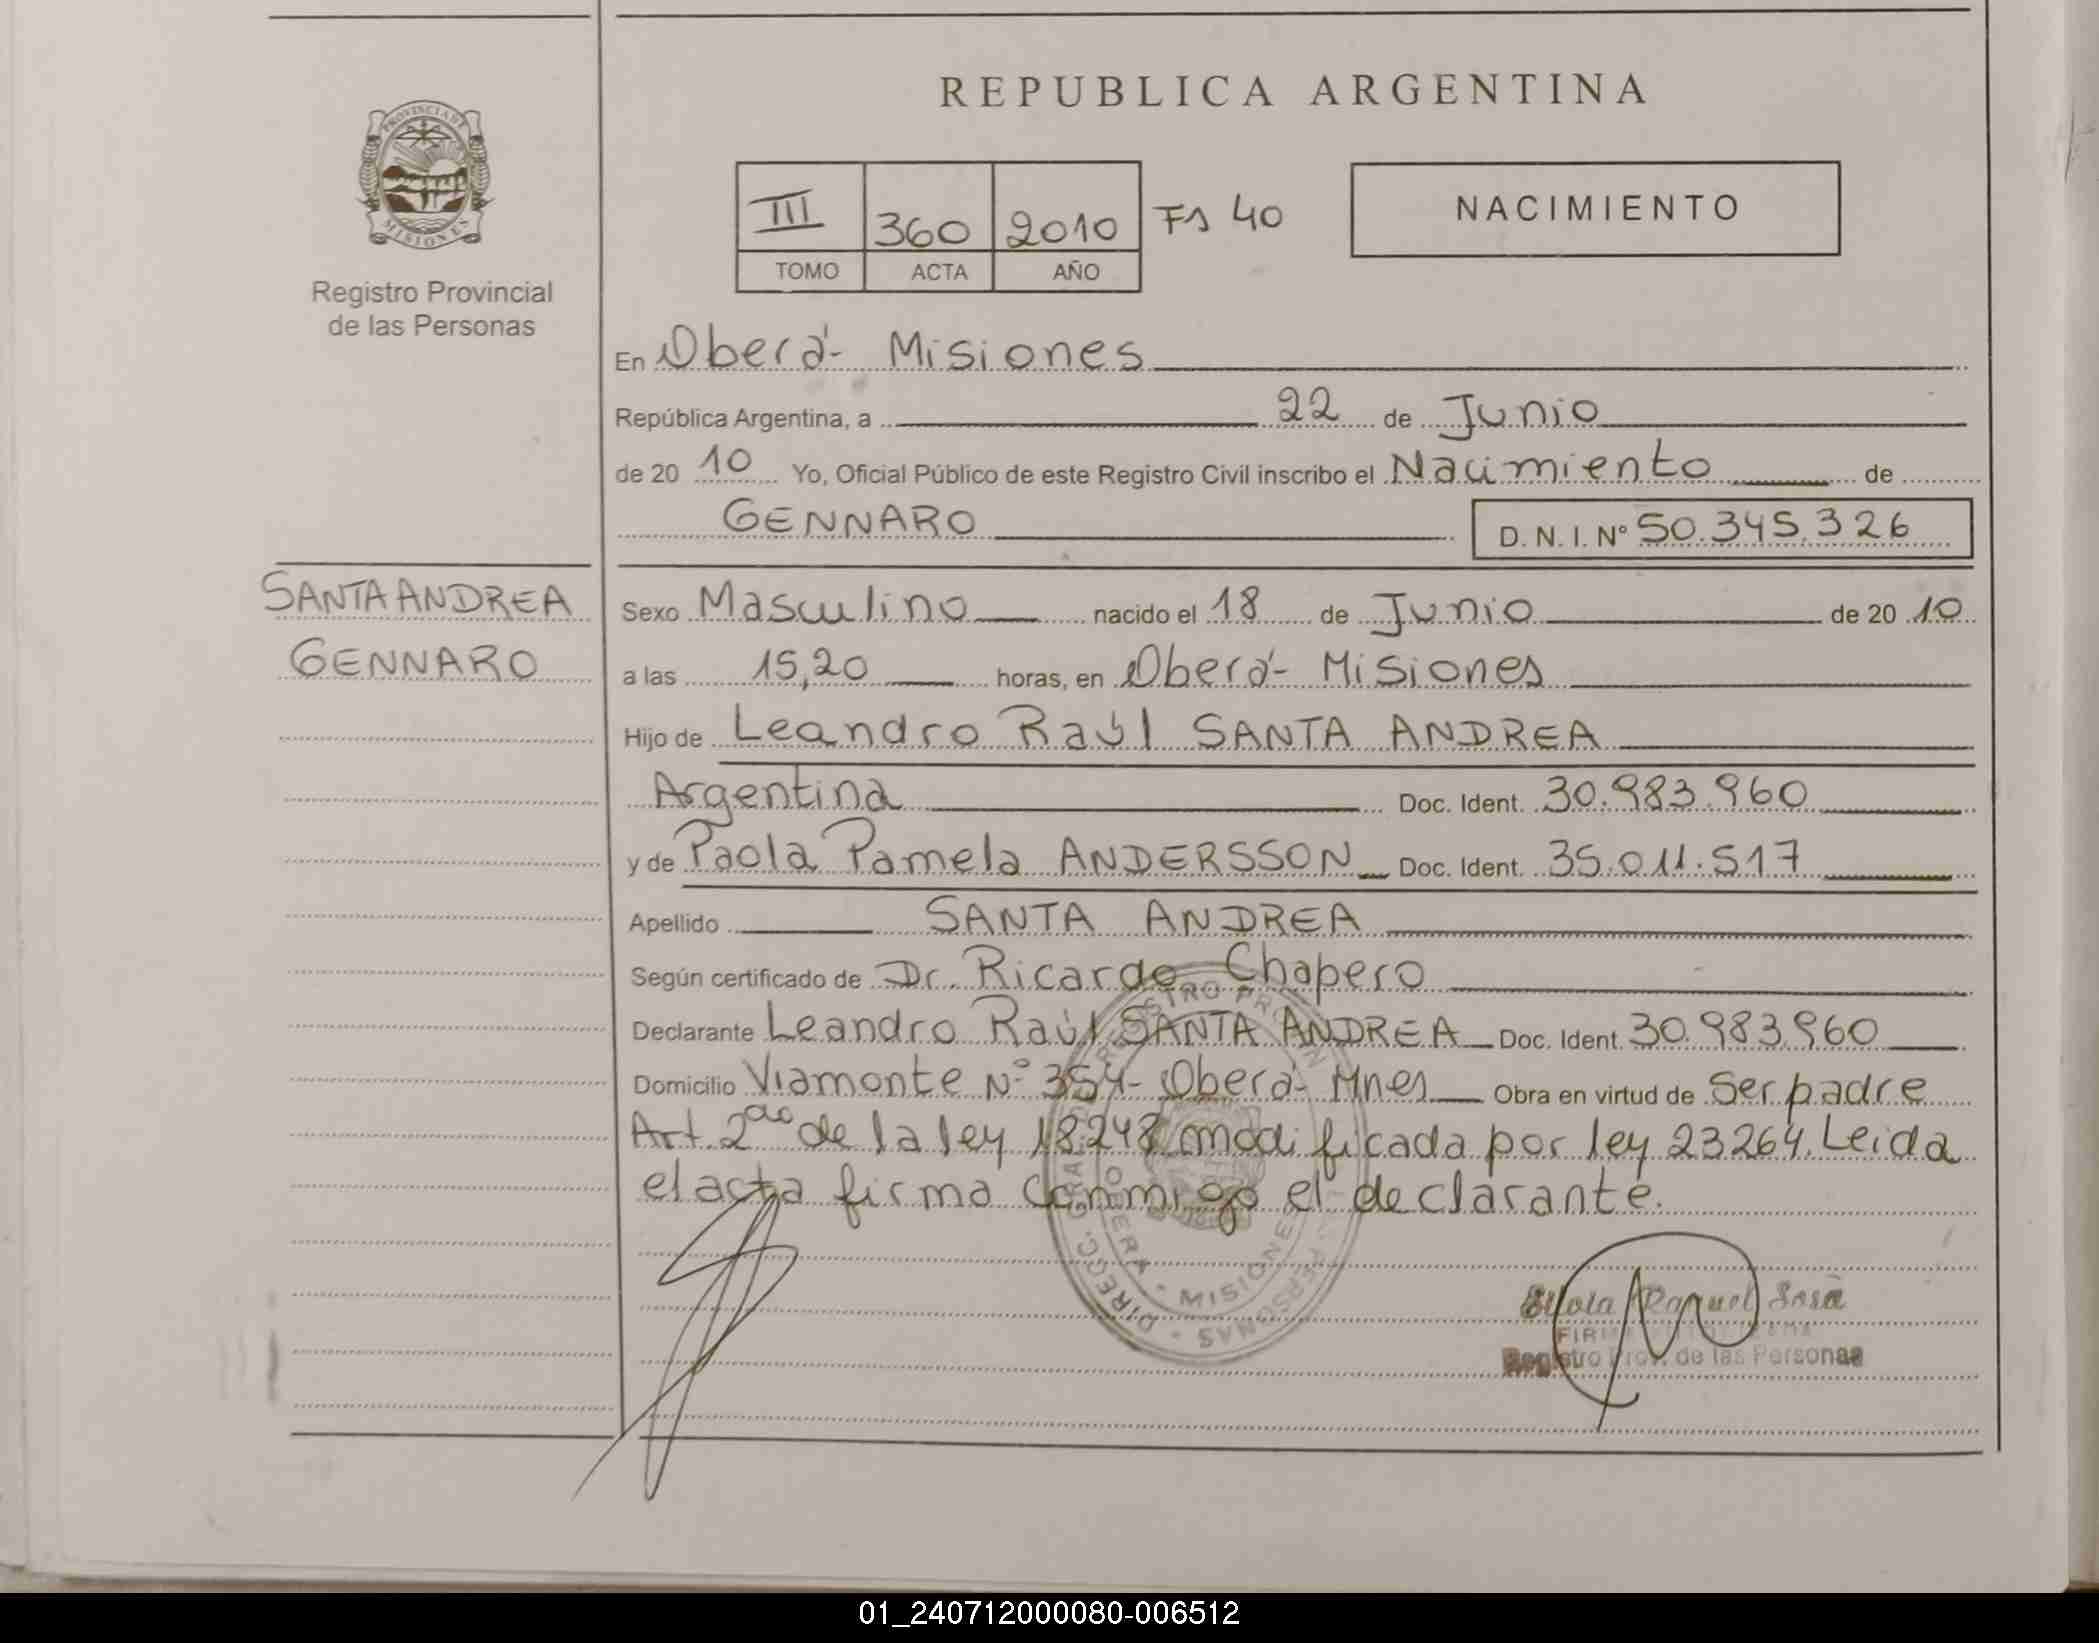 REPUBLICA ARGENTINA
PROVINCIA DE
MISIONES
Registro Provincial
de las Personas
III 360 2010 Fs 40
TOMO ACTA AÑO
NACIMIENTO
En Oberá - Misiones
República Argentina, a 22 de Junio
de 20 10 Yo, Oficial Público de este Registro Civil inscribo el Nacimiento de
GENNARO D. N. I. Nº 50.345.326
SANTA ANDREA
GENNARO
Sexo Masculino nacido el 18 de Junio de 20 10
a las 15,20 horas, en Oberá - Misiones
Hijo de Leandro Raúl SANTA ANDREA
Argentina Doc. Ident. 30.983.960
y de Paola Pamela ANDERSSON Doc. Ident. 35.011.517
Apellido SANTA ANDREA
Según certificado de Dr. Ricardo Chapero
Declarante Leandro Raúl SANTA ANDREA Doc. Ident. 30.983.960
Domicilio Viamonte Nº 354 - Oberá - Mnes Obra en virtud de Ser padre
Art. 2do de la ley 18.248 modificada por ley 23264. Leida
el acta firma conmigo el declarante.
OBERA - MISIONES
Raquel Sosa
Registro Prov. de las Personas
01_240712000080-006512